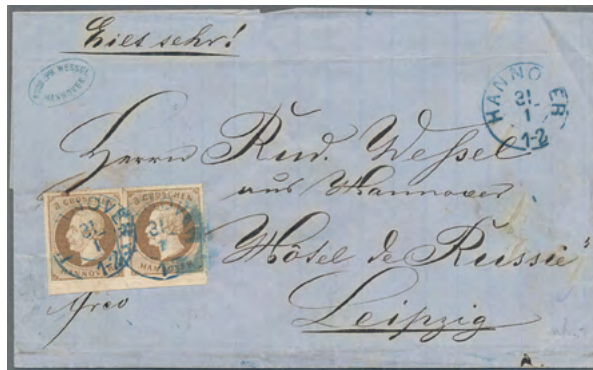 Eilt sehr!
RUDOLPH WESSEL
HANNOVER
HANNOVER
31
1
1-2
Herrn Rud. Weßel
aus Hannover
Hôtel de Russie"
Leipzig
3 GROSCHEN
HANNOVER
31
1
1-2
3 GROSCHEN
HANNOVER
31
1
frco